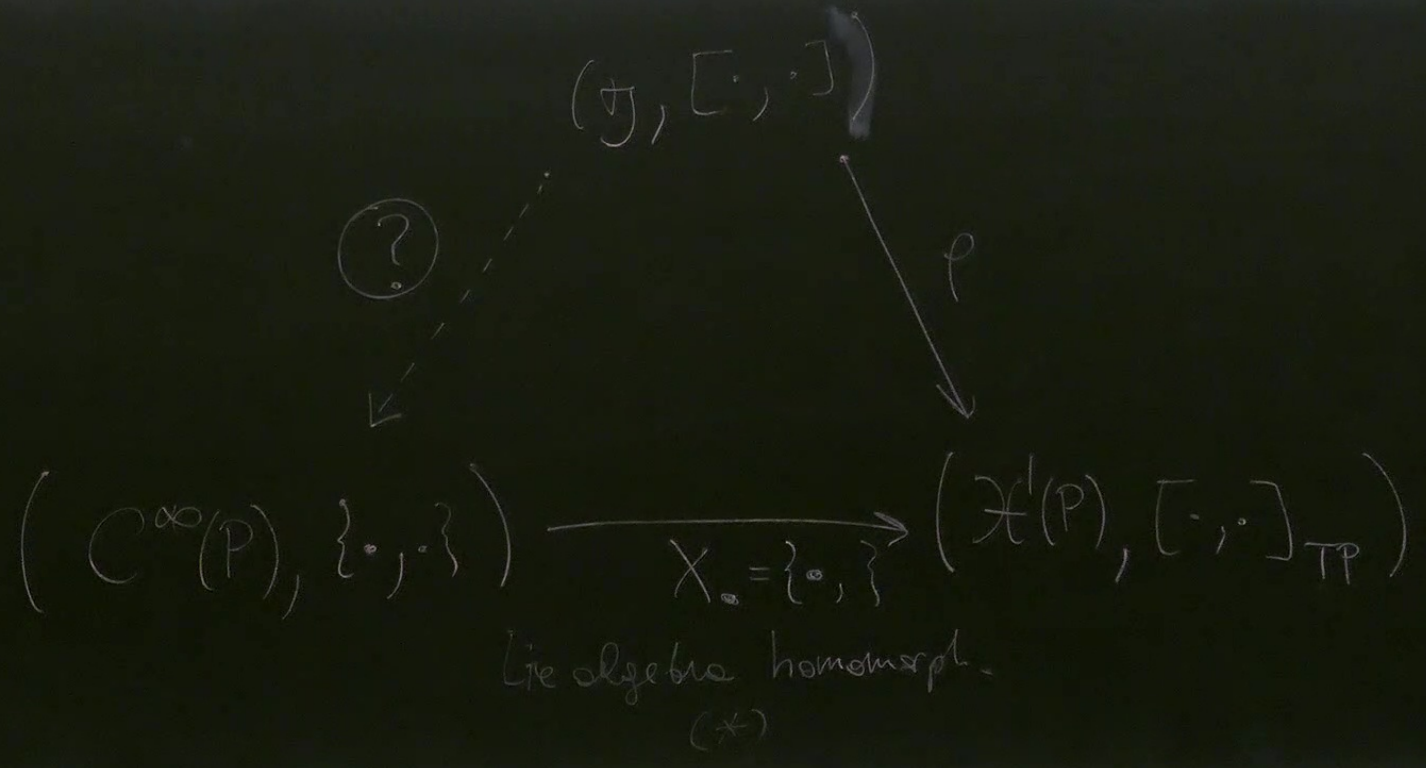 (𝔤, [·,·])
?
ρ
(C^∞(P), {·,·})
(𝔛¹(P), [·,·]_TP)
X_• = {•, }
Lie algebra homomorph.
(*)